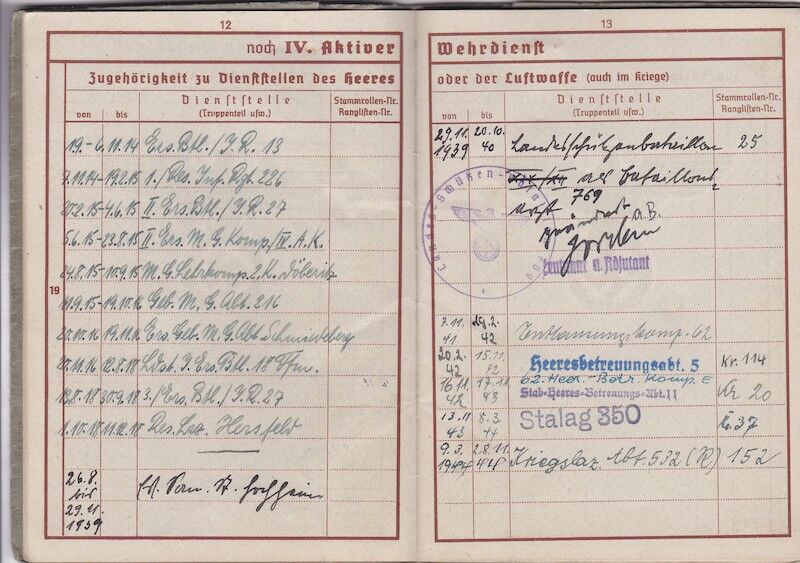 12
noch IV. Aktiver
Zugehörigkeit zu Dienststellen des Heeres
von bis
Dienststelle
(Truppenteil usw.)
Stammrollen-Nr.
Ranglisten-Nr.
19
19.- 6.11.14 Ers. Btl./J.R. 13
7.11.14-19.2.15 1./Res. Inf. Rgt. 226
20.2.15-4.6.15 II. Ers. Btl./J.R. 27
5.6.15-23.8.15 II. Ers. M.G. Komp./IV. A.K.
24.8.15-10.9.15 M.G. Lehrkomp. 2.K. Döberitz
11.9.15-19.10.16 Geb. M.G. Abt. 216
20.10.16 19.11.16 Ers. Geb. M.G. Abt. Schmiedeberg
20.11.16 12.8.18 Ldst. J. Ers. Btl. 18
13.8.18 30.9.18 3./Ers. Btl./J.R. 27
1.10.18 11.12.18 Res. Laz. Hersfeld
26.8.
bis
29.11.
1939
13
Wehrdienst
oder der Luftwaffe (auch im Kriege)
von bis
Dienststelle
(Truppenteil usw.)
Stammrollen-Nr.
Ranglisten-Nr.
29.11. 20.10.
1939 40 Landesschützenbataillon 25
als Bataillons
Arzt 769
geändert
Leutnant u. Adjutant
3.11. 19.2.
41 42 Entlausungskomp. 62
20.2. 15.11. Heeresbetreuungsabt. 5 Kr. 114
42 42
16.11. 17.11. 62. Heer.-Betr. Komp. E
42 43 Stab-Heeres-Betreuungs-Abt. 11 Nr 20
13.11 8.3. Stalag 350 37
43 44
9.3. 28.11.
1944 44 Kriegslaz. Abt. 532 (R) 152